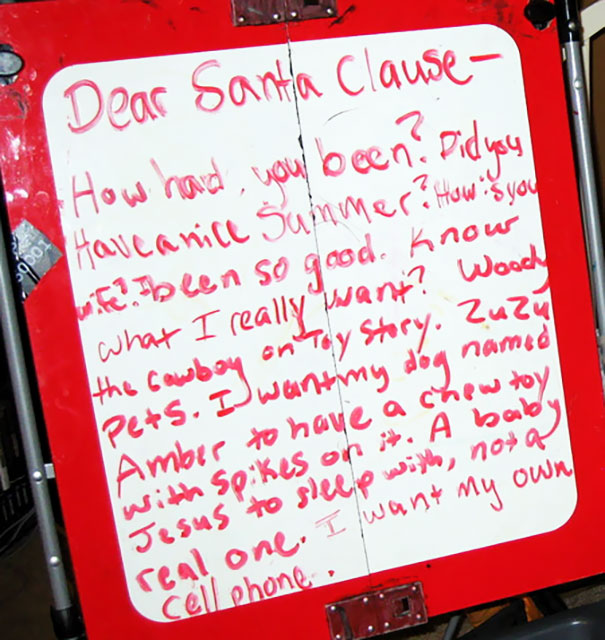 Dear Santa Clause—
How had you been? Did you
Have a nice Summer? How's you
wife? I been so good. Know
what I really want? Woody
the cowboy on Toy Story. ZuZu
Pets. I want my dog named
Amber to have a chew toy
with spikes on it. A baby
Jesus to sleep with, not a
real one. I want my own
cell phone.